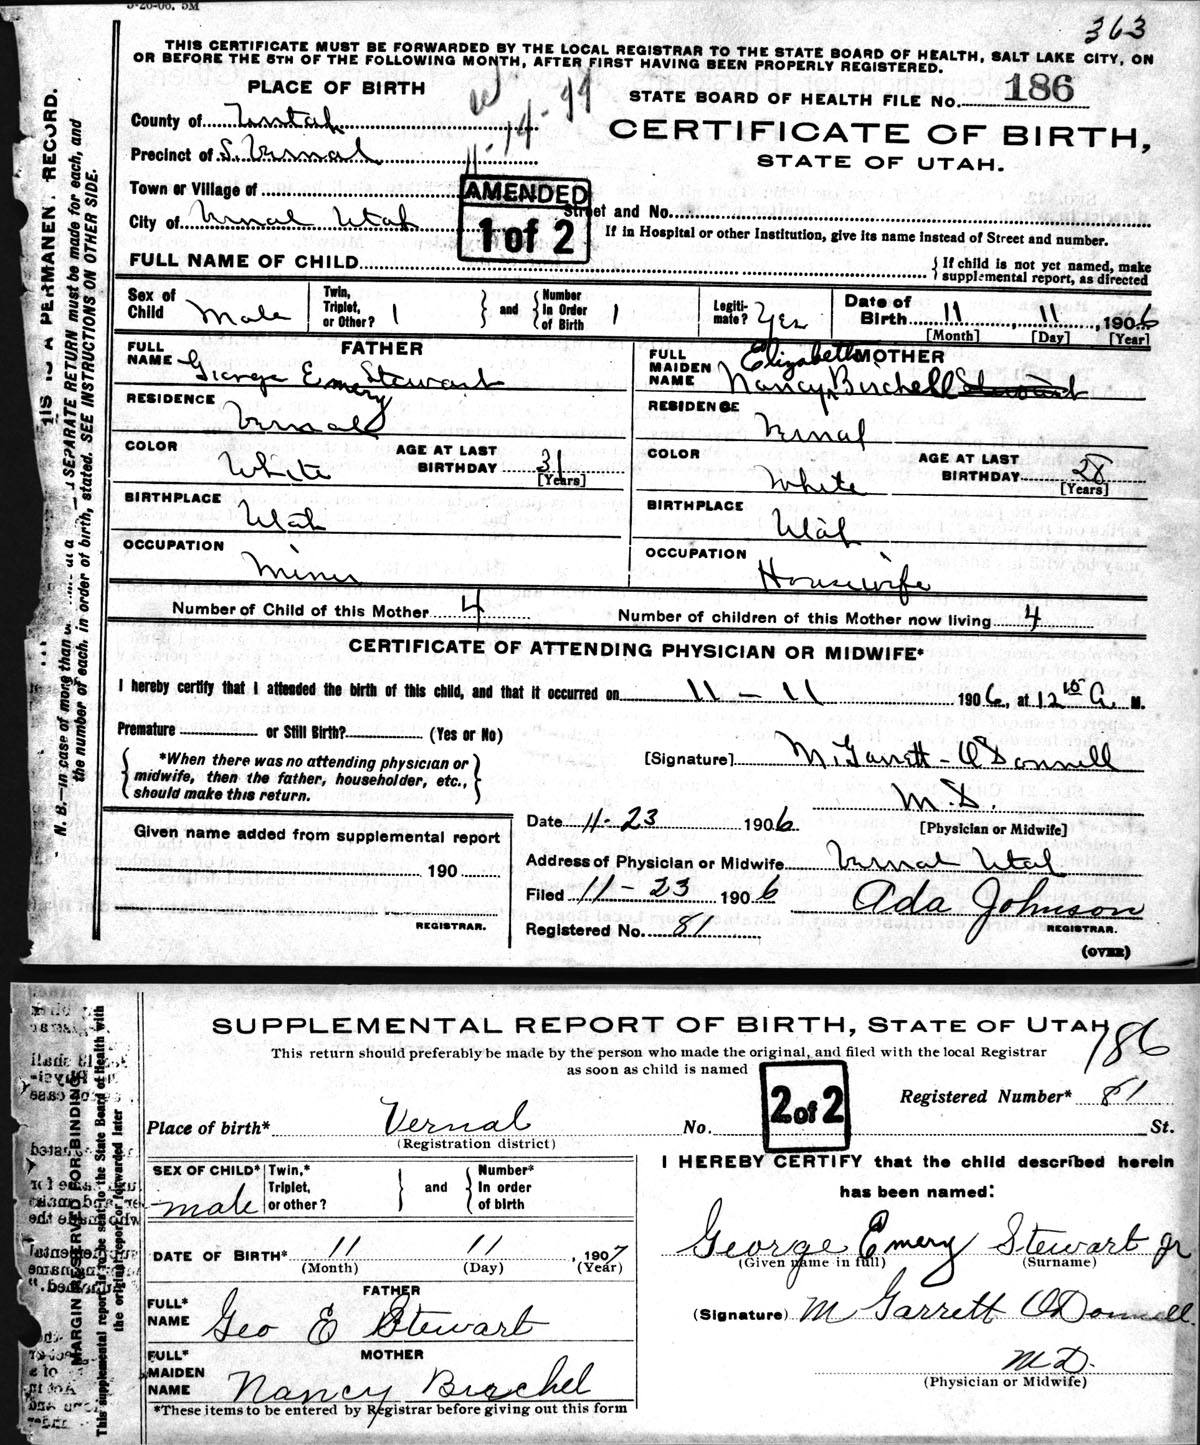 3-26-06. 5M
363
THIS CERTIFICATE MUST BE FORWARDED BY THE LOCAL REGISTRAR TO THE STATE BOARD OF HEALTH, SALT LAKE CITY, ON
OR BEFORE THE 5TH OF THE FOLLOWING MONTH, AFTER FIRST HAVING BEEN PROPERLY REGISTERED.
PLACE OF BIRTH
11-14-44
STATE BOARD OF HEALTH FILE No. 186
County of Uintah
CERTIFICATE OF BIRTH,
Precinct of S. Vernal
STATE OF UTAH.
Town or Village of
AMENDED
1 of 2
City of Vernal Utah
Street and No.
If in Hospital or other Institution, give its name instead of Street and number.
FULL NAME OF CHILD
{If child is not yet named, make
supplemental report, as directed
Sex of Child Male
Twin, Triplet, or Other? 1
} and {
Number In Order of Birth 1
Legiti- mate? Yes
Date of Birth 11, 11, 1906
[Month] [Day] [Year]
FATHER
FULL NAME George Emery Stewart
RESIDENCE Vernal
COLOR White
AGE AT LAST BIRTHDAY 31
[Years]
BIRTHPLACE Utah
OCCUPATION Miner
MOTHER
FULL MAIDEN NAME Nancy Elizabeth Birchell Stewart
RESIDENCE Vernal
COLOR White
AGE AT LAST BIRTHDAY 28
[Years]
BIRTHPLACE Utah
OCCUPATION Housewife
Number of Child of this Mother 4
Number of children of this Mother now living 4
CERTIFICATE OF ATTENDING PHYSICIAN OR MIDWIFE*
I hereby certify that I attended the birth of this child, and that it occurred on 11 - 11 1906, at 12 15 A. M.
Premature or Still Birth? (Yes or No)
{*When there was no attending physician or
midwife, then the father, householder, etc.,
should make this return.}
[Signature] M. Garrett - O'Donnell
M.D.
[Physician or Midwife]
Date 11-23 1906
Address of Physician or Midwife Vernal Utah
Filed 11-23 1906
Ada Johnson
REGISTRAR.
Registered No. 81
(OVER)
Given name added from supplemental report
190
REGISTRAR.
IS A PERMANENT RECORD.
N. B.—in case of more than SEPARATE RETURN must be made for each, and
the number of each, in order of birth, stated. SEE INSTRUCTIONS ON OTHER SIDE.
SUPPLEMENTAL REPORT OF BIRTH, STATE OF UTAH
186
This return should preferably be made by the person who made the original, and filed with the local Registrar
as soon as child is named
2 of 2
Registered Number* 81
Place of birth* Vernal No. St.
(Registration district)
SEX OF CHILD* male
Twin,* Triplet, or other?
} and {
Number* In order of birth
DATE OF BIRTH* 11 11, 1907
(Month) (Day) (Year)
FATHER
FULL* NAME Geo E Stewart
MOTHER
FULL* MAIDEN NAME Nancy Birchel
*These items to be entered by Registrar before giving out this form
I HEREBY CERTIFY that the child described herein
has been named:
George Emery Stewart Jr
(Given name in full) (Surname)
(Signature) M Garrett O'Donnell
M.D.
(Physician or Midwife)
MARGIN RESERVED FOR BINDING
This supplemental report is to be sent to the State Board of Health with
the original report or forwarded later